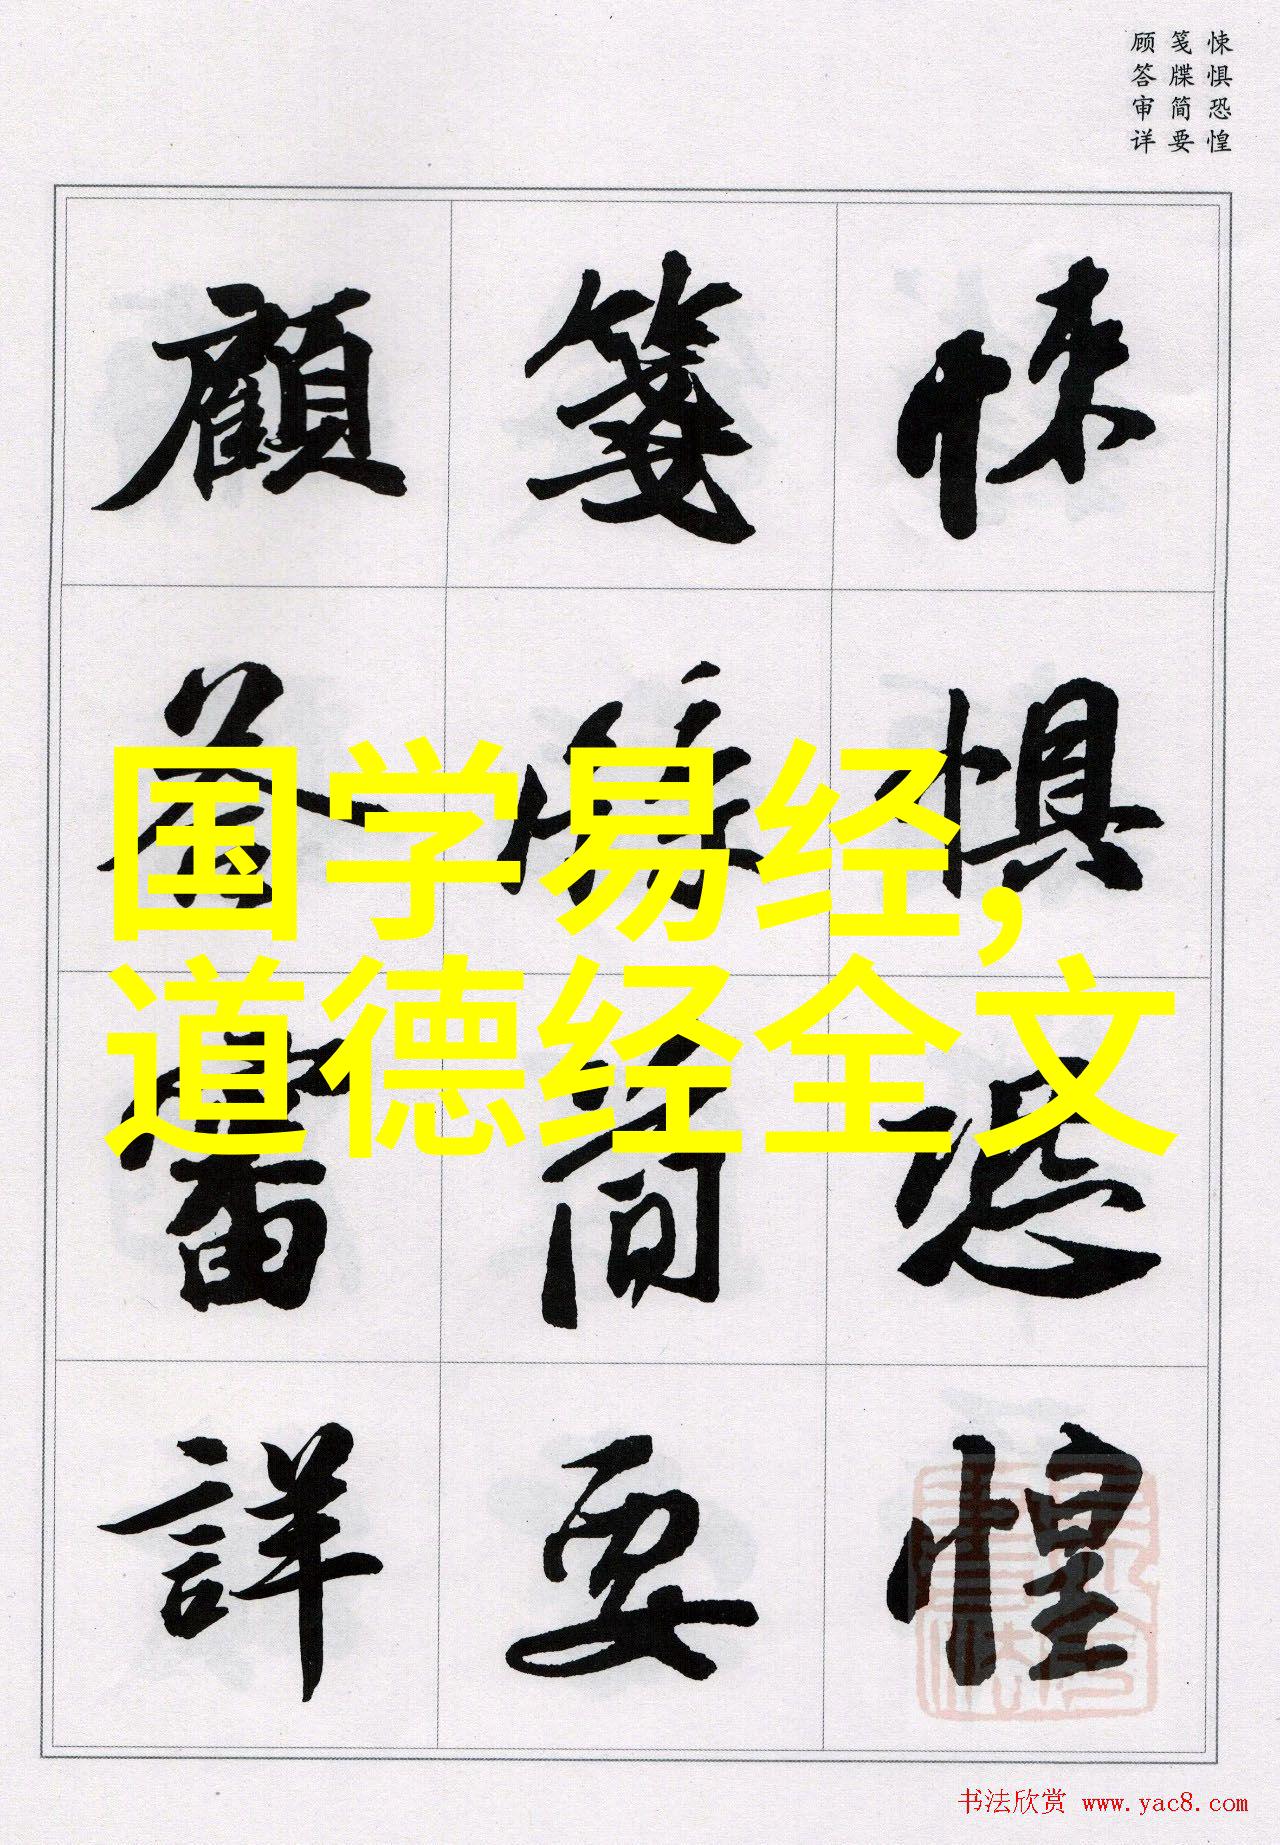 悚惧恐惶
笺牒简要
顾答审详
悚惧恐惶
笺牒简要
顧答審詳
国学易经,
道德经全文
书法欣赏 www.yac8.com